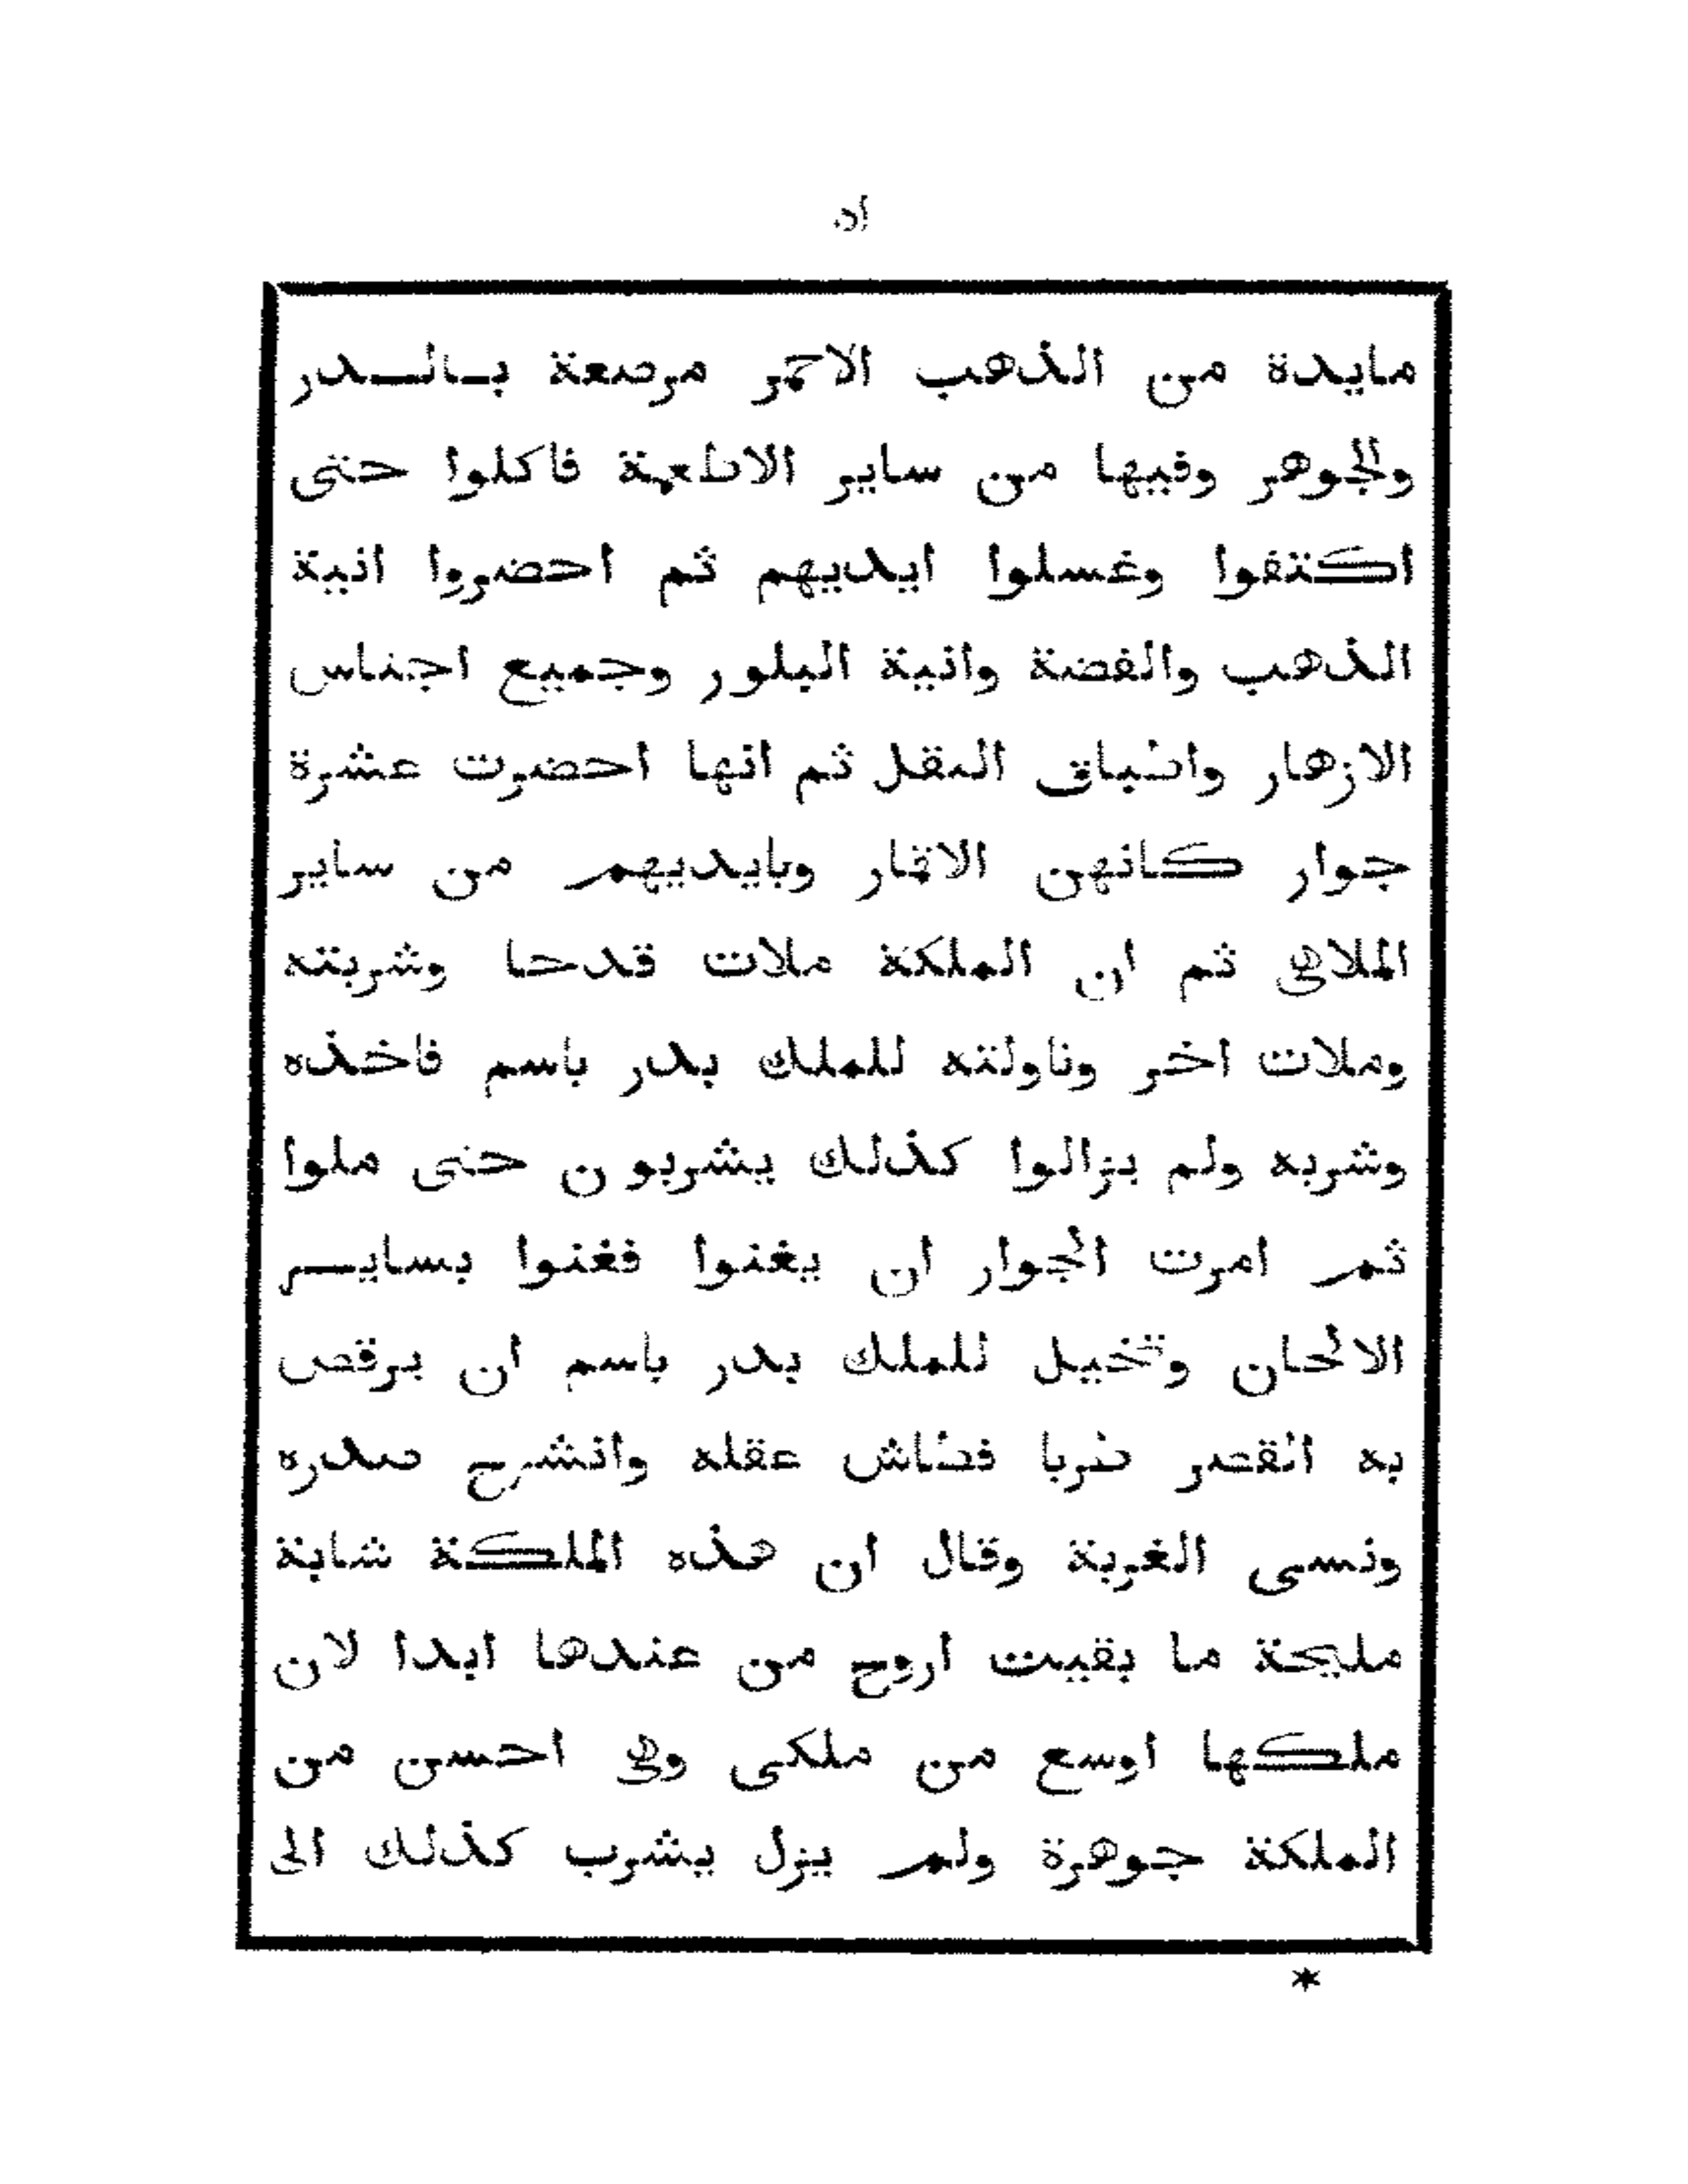 مايدة من الذهب الاحمر مرصعة بالدر
والجوهر وفيها من ساير الاطعمة فاكلوا حتى
اكتفوا وغسلوا ايديهم ثم احضروا انية
الذهب والفضة وانية البلور وجميع اجناس
الازهار واطباق النقل ثم انها احضرت عشرة
جوار كانهن الاقمار وبايديهم من ساير
الملاهى ثم ان الملكة ملات قدحا وشربته
وملات اخر وناولته للملك بدر باسم فاخذه
وشربه ولم يزالوا كذلك يشربون حتى ملوا
ثم امرت الجوار ان يغنوا فغنوا بساير
الالحان وتخيل للملك بدر باسم ان يرقص
به القصر طربا فطاش عقله وانشرح صدره
ونسى الغربة وقال ان هذه الملكة شابة
مليحة ما بقيت اروح من عندها ابدا لان
ملكها اوسع من ملكى وهى احسن من
الملكة جوهرة ولم يزل يشرب كذلك الى
*